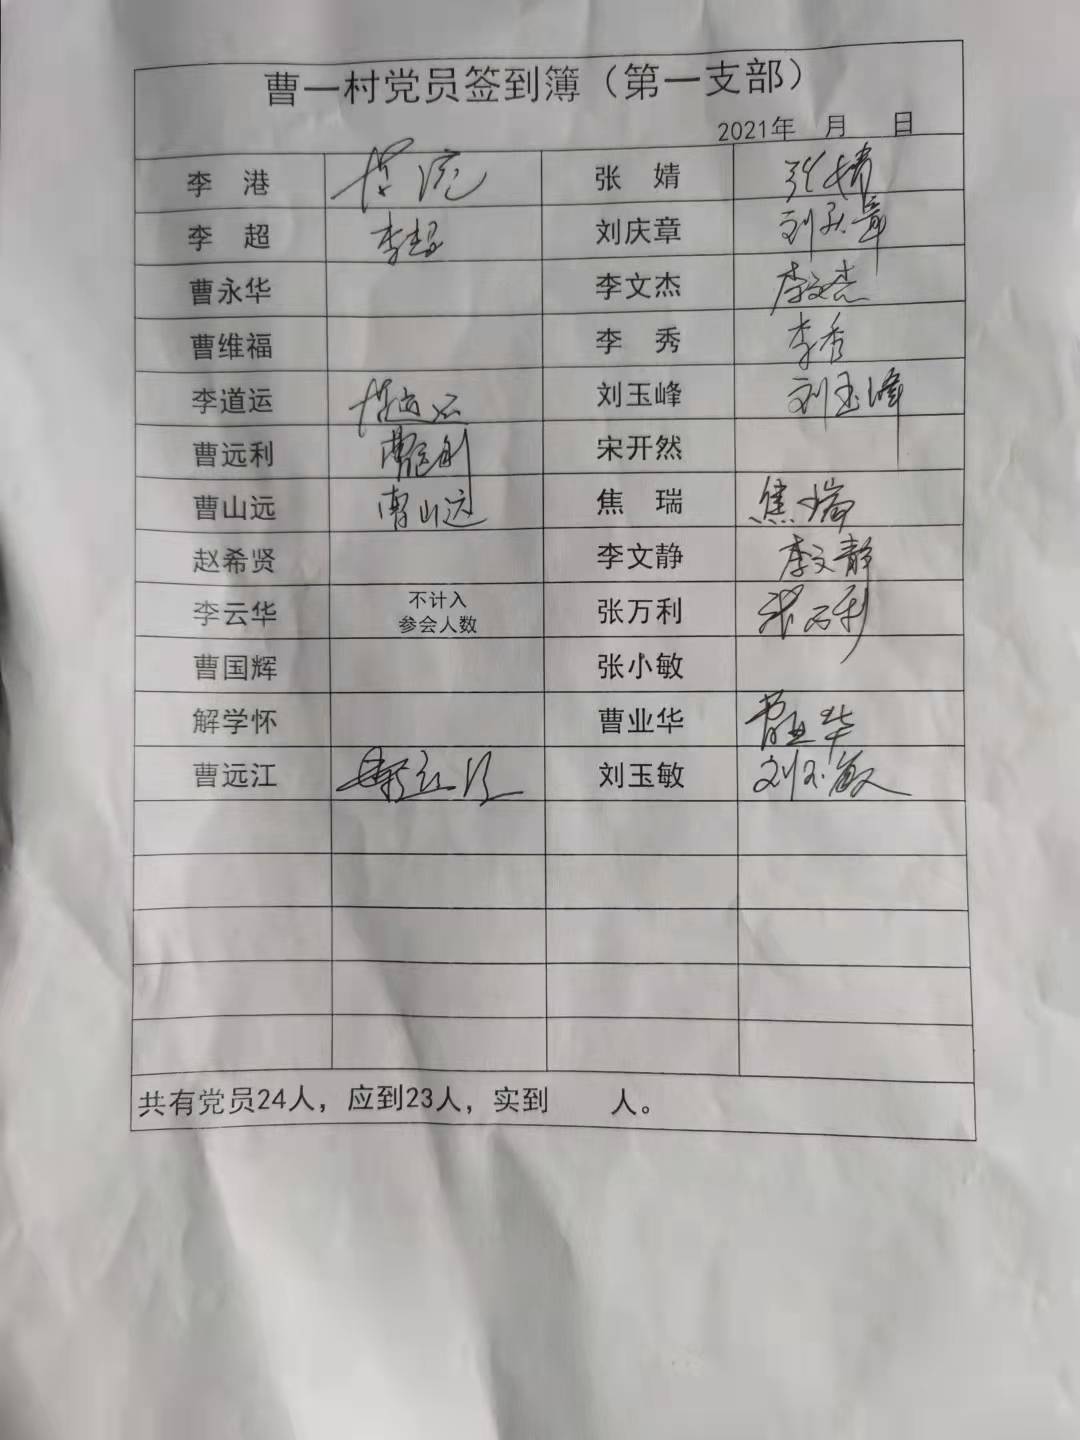 曹一村党员签到簿（第一支部）
2021年 月 日
李 港 张 婧 张婧
李 超 李超 刘庆章 刘庆章
曹永华 李文杰 李文杰
曹维福 李 秀 李秀
李道运 刘玉峰 刘玉峰
曹远利 曹远利 宋开然
曹山远 曹山远 焦 瑞 焦瑞
赵希贤 李文静 李文静
李云华 不计入
参会人数 张万利 张万利
曹国辉 张小敏
解学怀 曹业华 曹业华
曹远江 刘玉敏 刘玉敏
共有党员24人，应到23人，实到 人。